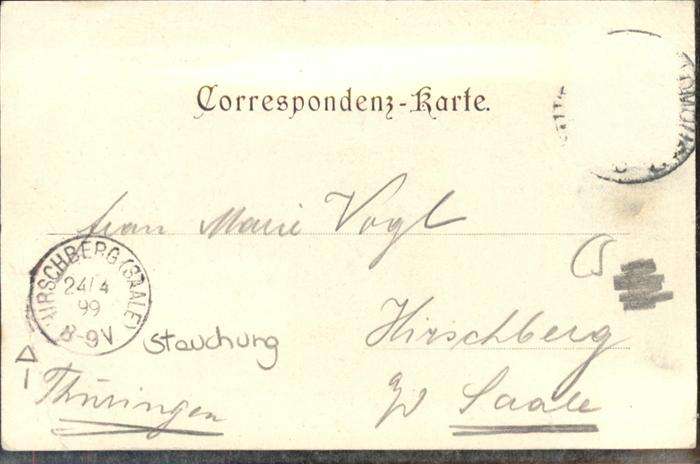 Correspondenz-Karte.
Frau Marie Vogl
HIRSCHBERG (SAALE)
24/4
99
8-9V
Stauchung
Hirschberg
Saale
Thüringen